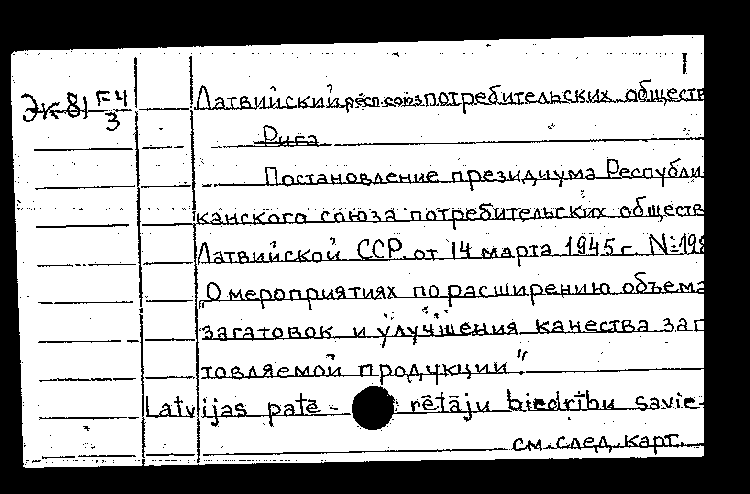 I
Эк-81 F-4
3
Латвийский респ. союз потребительских обществ
Рига
Постановление президиума Республи
канского союза потребительских обществ
Латвийской ССР от 14 марта 1945 г. №198
„О мероприятиях по расширению объема
загатовок и улучшения канества заг
товляемой продукции"
Latvijas patē- rētāju biedrību savie-
см. след. карт.